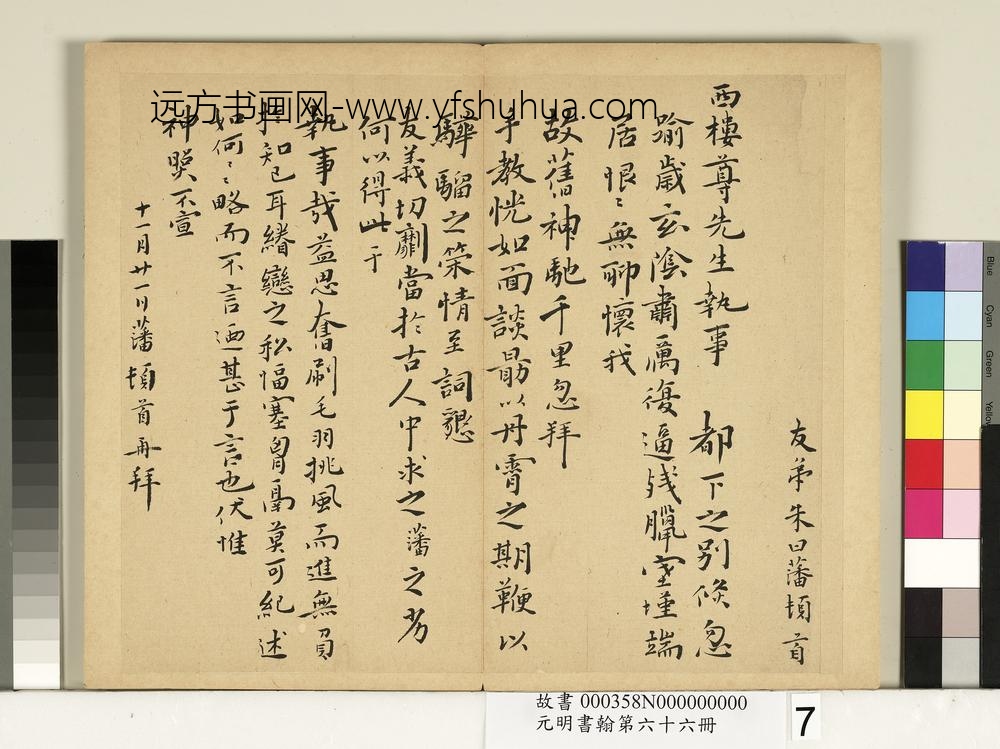 友弟朱曰藩頓首
西樓尊先生執事 都下之別倐忽
踰歲玄陰肅厲復逼殘臘室墐端
居恨〻無聊懷我
故舊神馳千里忽拜
手教恍如面談最以丹霄之期鞭以
驊騮之策情至詞懇
友義切劘當於古人中求之藩之劣
何以得此于
執事哉益思奮刷毛羽挑風而進無負
知己耳繾戀之私愊塞胷鬲莫可紀述
如何〻略而不言迺甚于言也伏惟
神睽不宣
十一月廿一日藩頓首再拜
远方书画网-www.yfshuhua.com
故書 000358N000000000
元明書翰第六十六冊
7
Blue
Cyan
Green
Yellow